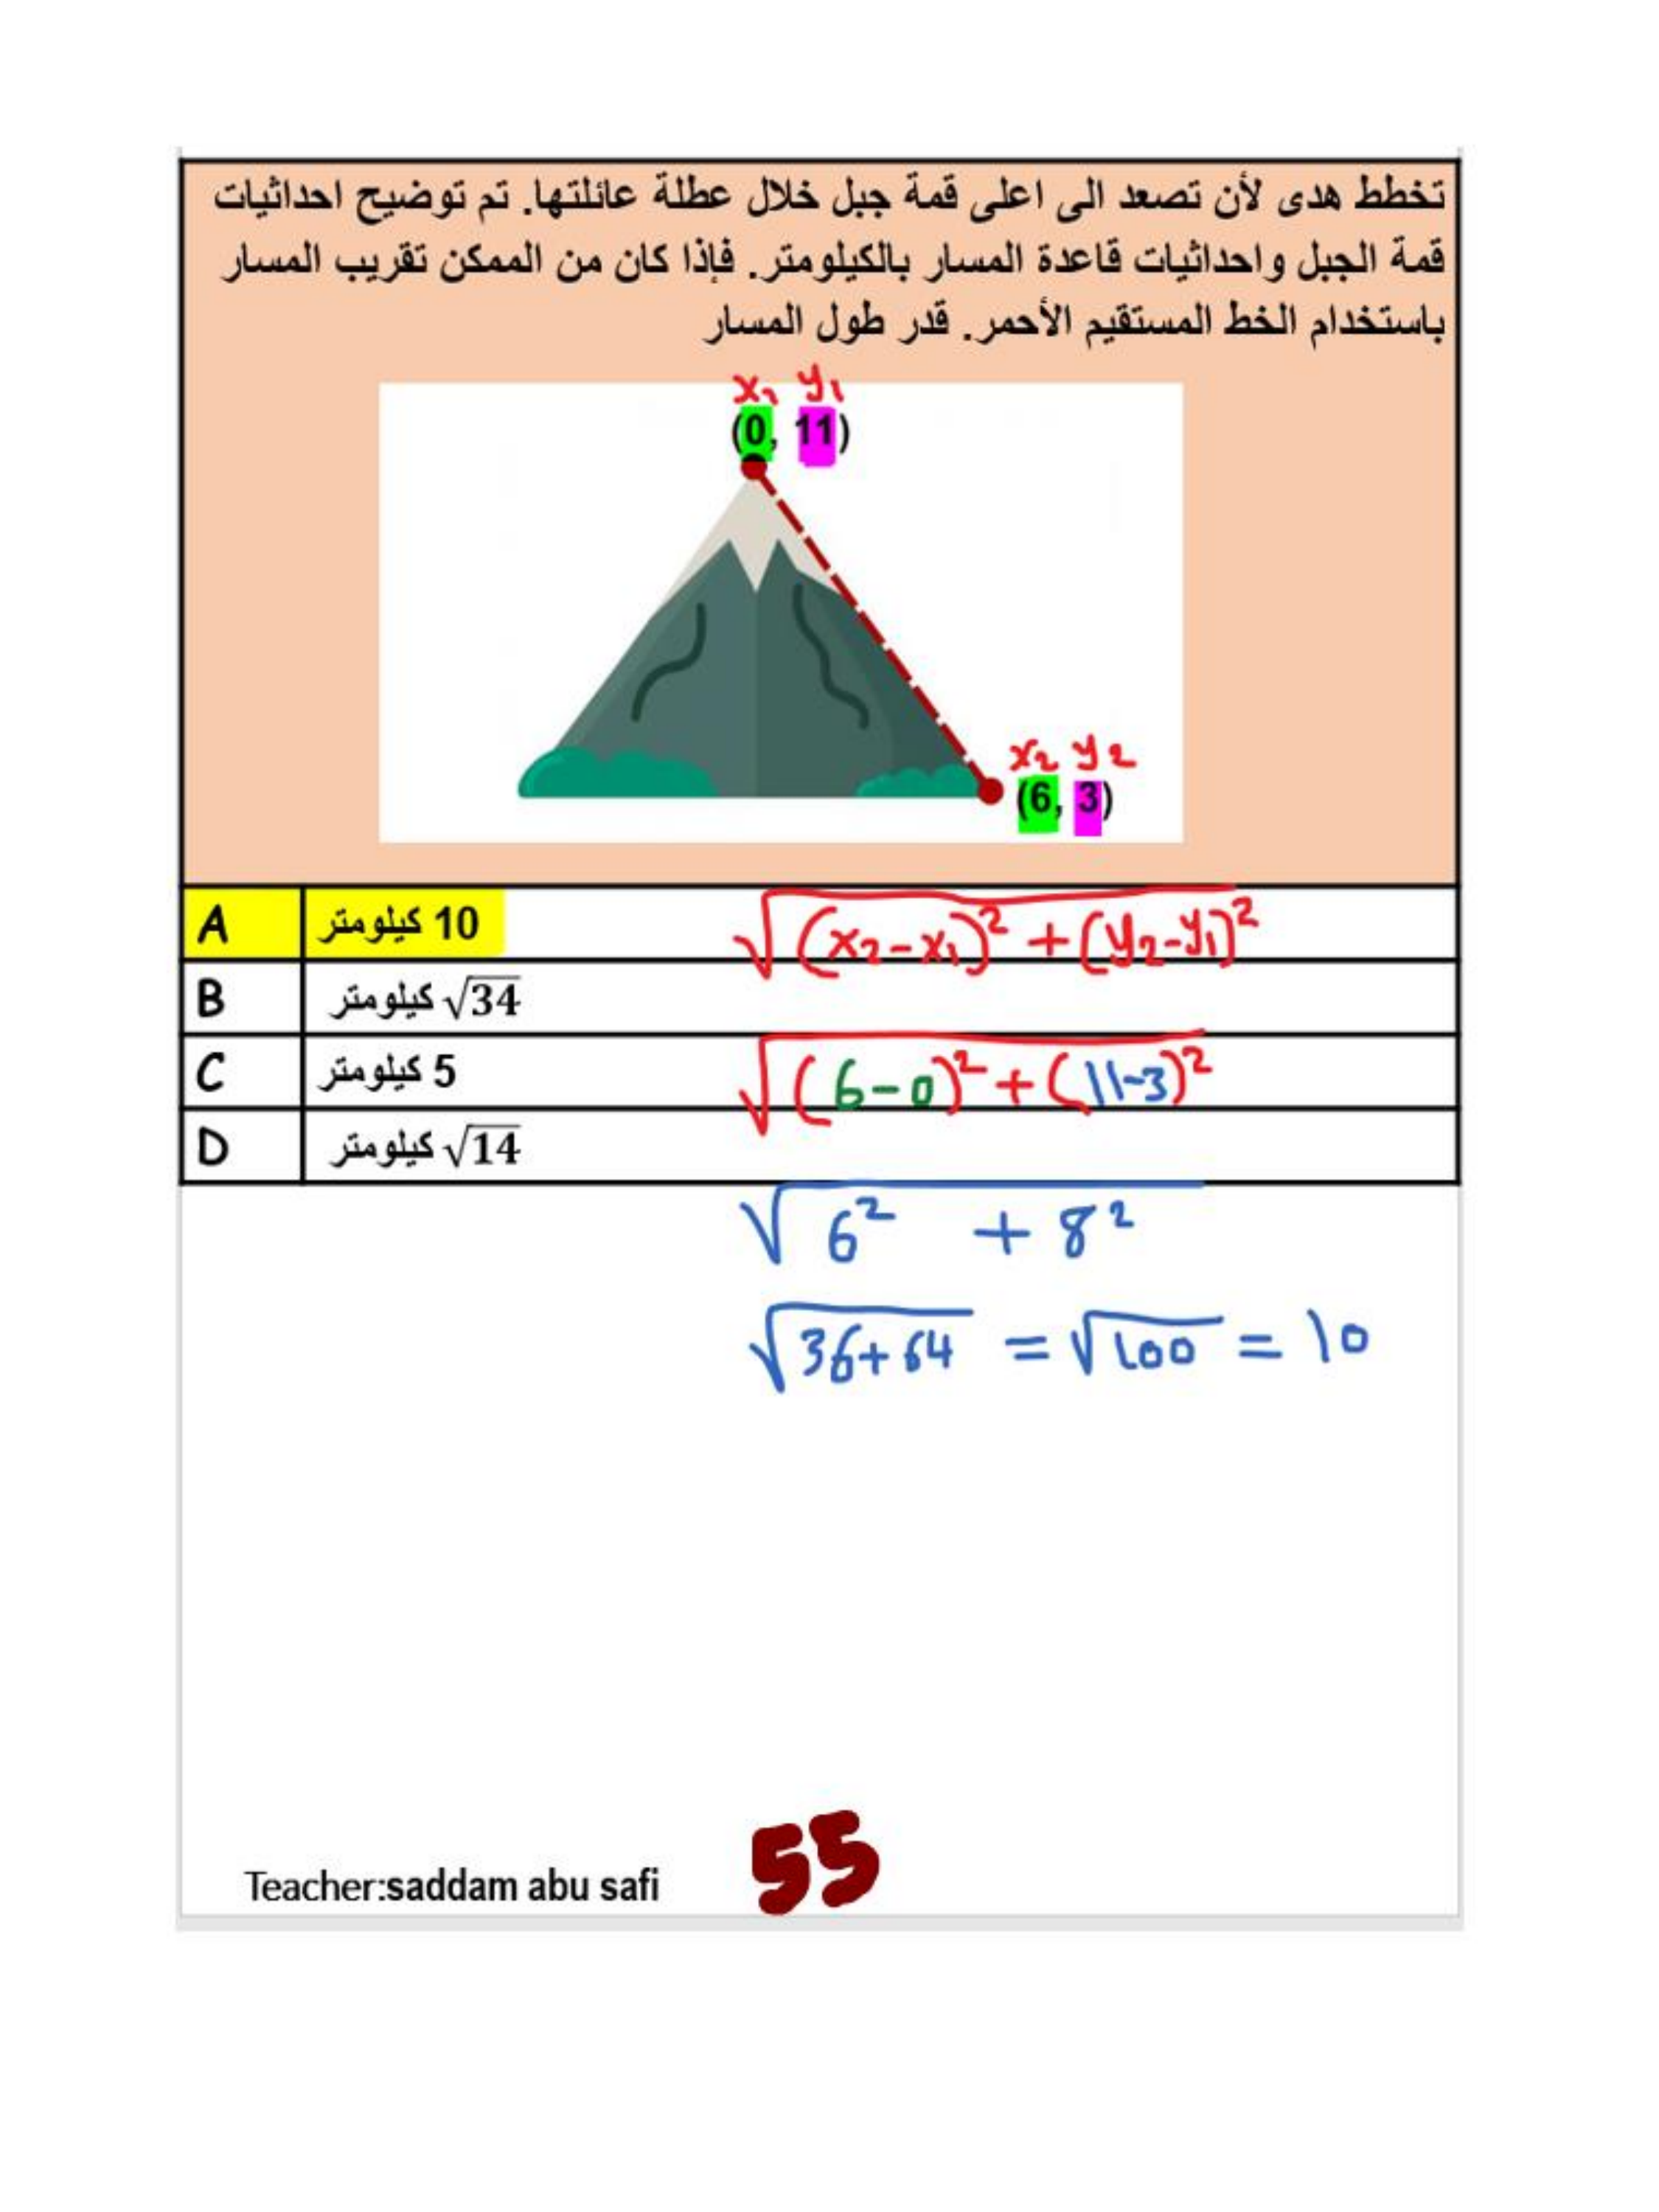 تخطط هدى لأن تصعد الى اعلى قمة جبل خلال عطلة عائلتها. تم توضيح احداثيات
قمة الجبل واحداثيات قاعدة المسار بالكيلومتر. فإذا كان من الممكن تقريب المسار
باستخدام الخط المستقيم الأحمر. قدر طول المسار
x₁ y₁
(0, 11)
x₂ y₂
(6, 3)
A 10 كيلومتر
√((x₂-x₁)² + (y₂-y₁)²)
B √34 كيلومتر
C 5 كيلومتر
√((6-0)² + (11-3)²)
D √14 كيلومتر
√(6² + 8²)
√(36+64) = √100 = 10
Teacher:saddam abu safi 55